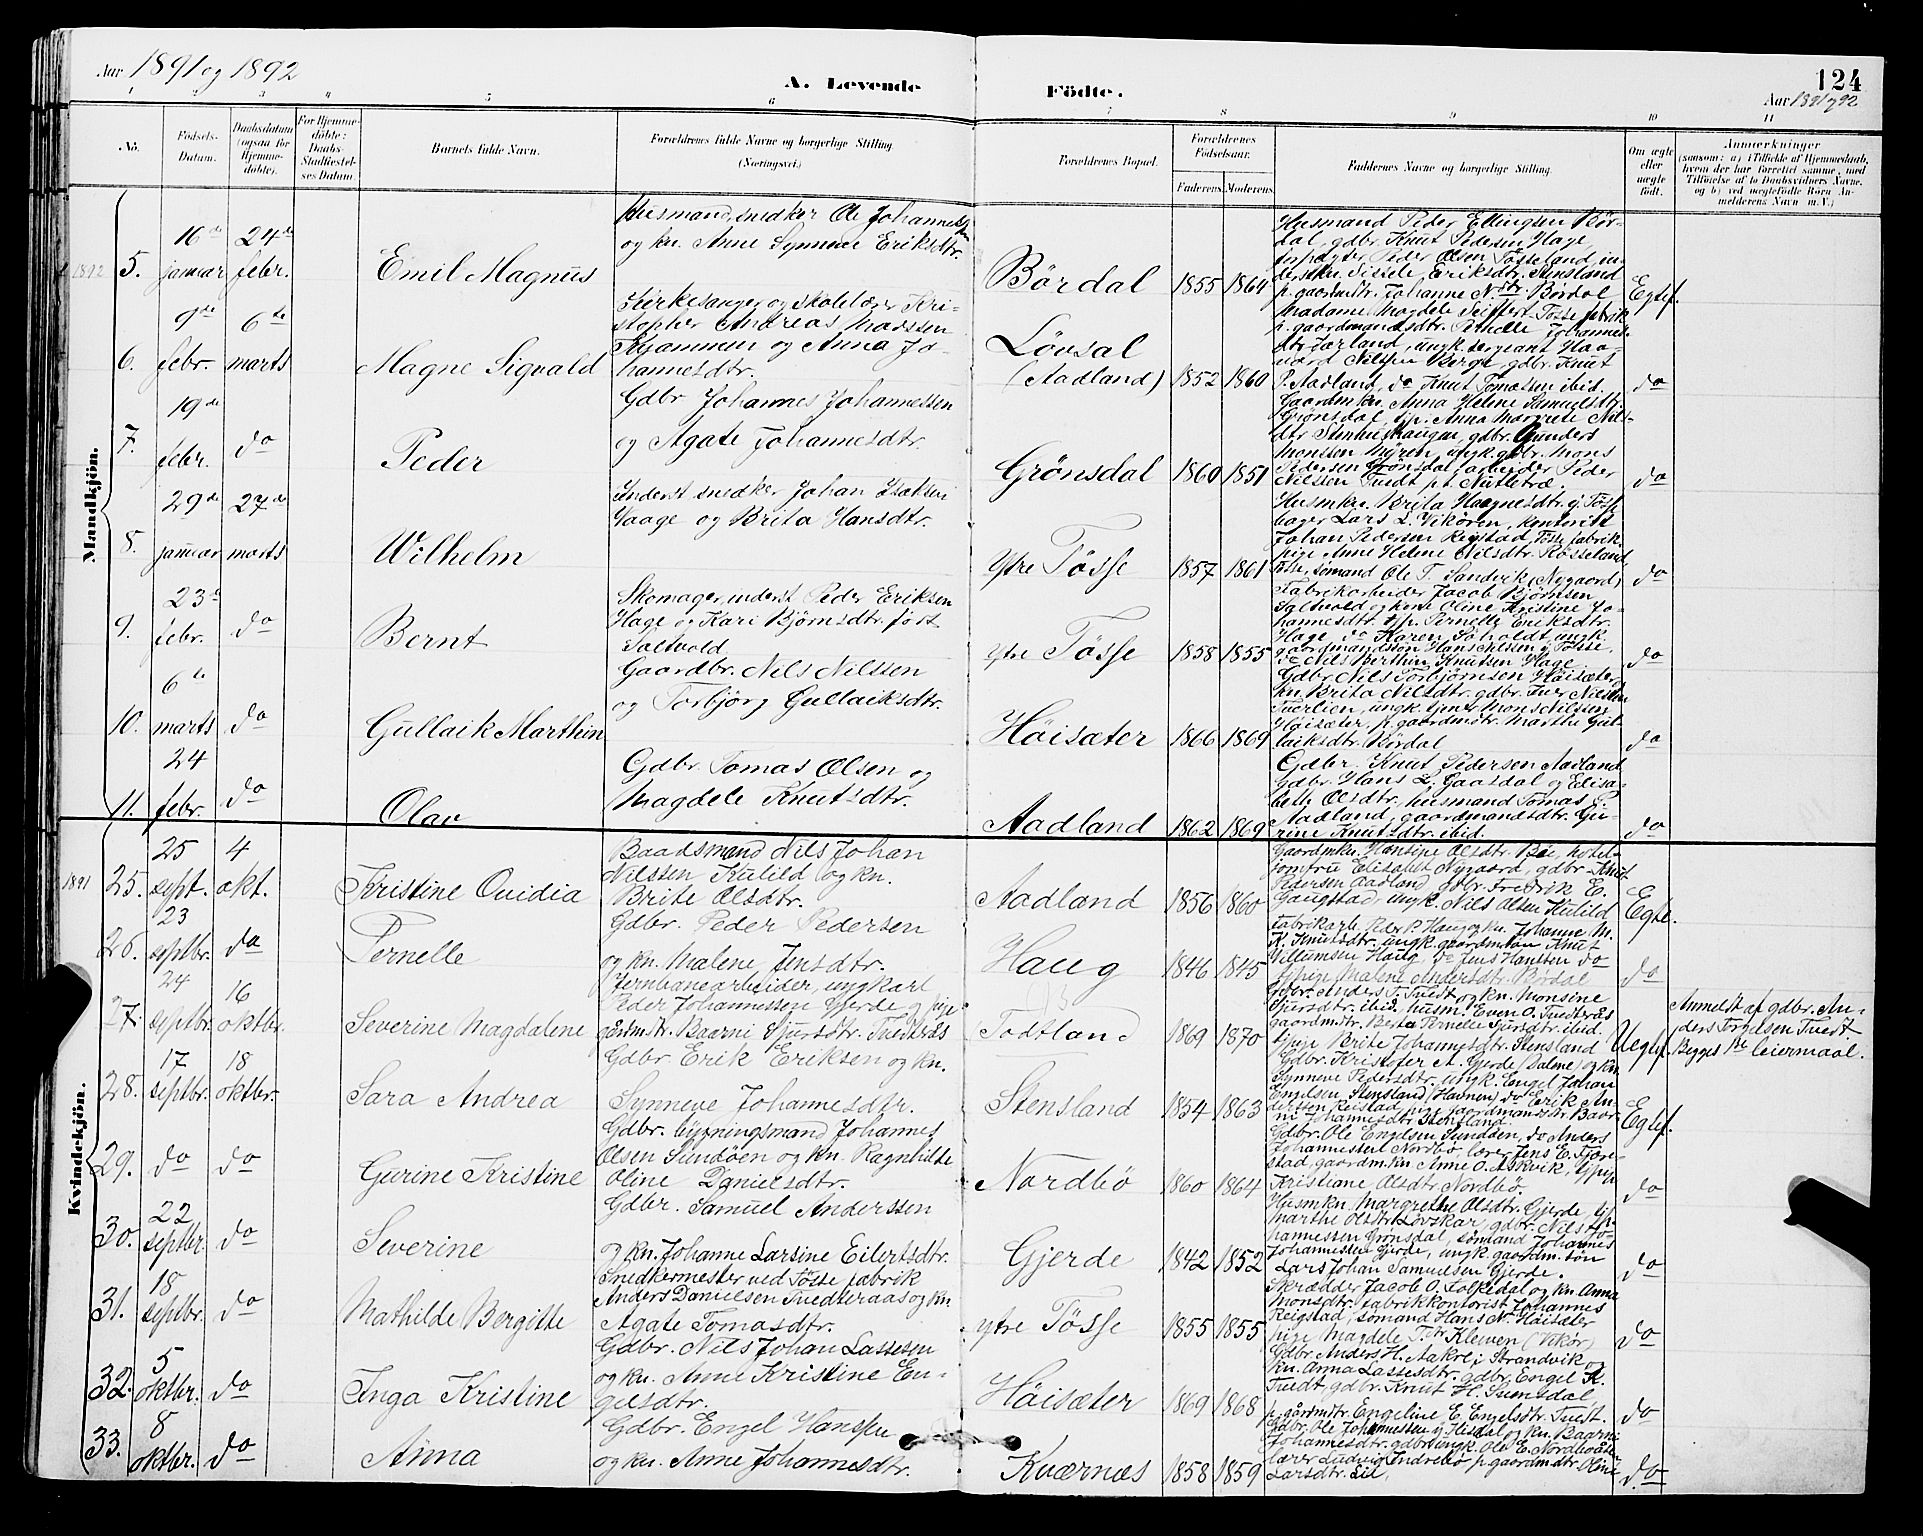 Aar 1891 og 1892
A. Levende Födte.
124
Aar 1891 og 92
1 2 3 4 5 6 7 8 9 10 11
No.
Födsels-Datum.
Daabsdatum (ogsaa for Hjemme-döbte).
For Hjemme-döbte: Daabs-Stadfæstel-ses Datum.
Barnets fulde Navn.
Forældrenes fulde Navne og borgerlige Stilling. (Næringsvei.)
Forældrenes Bopæl.
Forældrenes Födselsaar.
Faderens.
Moderens.
Faddernes Navne og borgerlige Stilling.
Om ægte eller uægte født.
Anmærkninger
(saasom: a) i Tilfælde af Hjemmedaab, hvem der har forrettet samme, med Tilföielse af to Daabsvidners Navne, og b) ved uægtefödte Börn Anmelderens Navn m. V.)
Mandkjön.
1892
5.
16de januar
24de febr.
Emil Magnus
Husmand, snedker Ole Johannes
og kn. Anne Synneve Eriksdtr.
Bördal
1855
1864
Husmand Peder Ellingsen Bör-
dal, gdbr. Knut Pedersen Hage,
forpagter Peder Olsen Tösseland, in-
derstkn. Sissele Eriksdtr. Stensland
p. gaardmdtr. Johanne N.dtr. Bördal
Egtef.
6.
9de febr.
6te marts
Magne Sigvald
Kirkesanger og skolelærer Kri-
stopher Andreas Madssen
Kjammen og Anna Jo-
hannesdtr.
Lövsal
(Aadland)
1852
1860
Madame Magdele Seiffert Tösse fabrik
p. gaardmandsdtr. Pernelle Johannes-
dtr. Jarland, ungk. sergeant Haa-
vard Nilssen Berge, gdbr. Knut
P. Aadland, do Knut Tomassen ibid.
do
7.
19de febr.
do
Peder
Gdbr. Johannes Johannessen
og Agate Johannesdtr.
Grönsdal
1860
1851
Gaardmkn. Anna Helene Samuelsdtr.
Grönsdal, tjp. Anna Margrete Nils-
dtr Stenhushaugen, gdbr. Gunders
Monsen Myren, ungk. gdbr. Mons
Pedersen Grönsdal, arbeider Peder
Nilssen Tvedt pt. Nutletræ.
do
8.
29de januar
27de marts
Wilhelm
Inderst snedker Johan Isaksen
Vaage og Brita Hansdtr.
ytre Tösse
1857
1861
Husmkn. Brita Haagnesdtr. y. Tösse
bager Lars L. Vikören, kontorist
Johan Pedersen Reigstad, Tösse fabrik
pige Anne Helene Nilsdtr. Rosseland
Tösse, sömand Ole T. Sandvik (Nygaard)
do
9.
23de febr.
do
Bernt
Skomager, inderst Peder Eriksen
Hage og Kari Bjørnsdtr. fort
Saltvold
ytre Tösse
1858
1855
Fabrikarbeider Jacob Bjørnsen
Saltvold og kone Oline Kristine Jo-
hannesdtr. tjp. Pernelle Eriksdtr.
Hage, do Karen Soholdt, ungk.
gaardmandssön Hans Nilssen y. Tösse,
do Nils Berthin Knutsen Hage.
do
10.
6te marts
do
Gullaik Marthin
Gaardbr. Nils Nilssen
og Torbjörg Gullaiksdtr.
Höisæter
1866
1869
Gdbr. Nils Torbjørnsen Höisæter og
kn. Brita Nilsdtr. gdbr. Iver Nilssen
Tverlien, ungk. tjener Mons Nilssen
Höisæter, p. gaardmdtr. Marthe Gul-
laiksdtr. Bördal
do
11.
24 febr.
do
Olav
Gdbr. Tomas Olsen og
Magdele Knutsdtr.
Aadland
1862
1869
Gdbr. Knut Pedersen Aadland
Gdbr. Hans L. Gaasdal og Elisa-
beth Olsdtr. husmand Tomas P.
Aadland, gaardmandsdtr. Gu-
rine Knutsdtr. ibid.
do
Kvindekjön.
1891
25.
25 sept.
4 okt.
Kristine Ovidia
Baadsmand Nils Johan
Nilssen Kulild og kn.
Brite Olsdtr.
Aadland
1856
1860
Gaardmkn. Hansine Olsdtr. Böe, hotel-
jomfru Elisabet Nygaard, gdbr. Knut
Pedersen Aadland, gdbr. Fredrik E.
Gaugstad, ungk. Nils Olsen Kulild
Egte.
26.
23 septbr.
do
Pernelle
Gdbr. Peder Pedersen
og kn. Malene Jensdtr.
Haug
1846
1845
Fabrikarb. Peder P. Haug og kn. Johanne M.
K. Knutsdtr. ungk. gaardmsön Knut
Willumsen Haug, do Jens Hanssen do
tjpige Malene Andersdtr. Bördal
do
27.
24 septbr.
16 oktbr.
Severine Magdalene
Jernbanearbeider, ungkarl
Peder Johannessen Gjerde og pige
gårdmdtr. Baarni Sjursdtr. Tvedteraas
Todtland
1869
1870
Gdbr. Anders T. Tvedt og kn. Monsine
Sjursdtr. ibid, husm. Even O. Tvedteraas
gaardmdtr. Berta Pernelle Sjursdtr. ibid.
tjpige Brite Johannesdtr. Stensland
Uegtef.
Anmeldt af gdbr. An-
ders Torgelsen Tvedt.
Begges 1ste leiermaal.
28.
17 septbr.
18 oktbr.
Sara Andrea
Gdbr. Erik Eriksen og kn.
Synneve Johannesdtr.
Stensland
1854
1863
Gdbr. Kristofer A. Gjerde (Dalene) og kn.
Synneve Pedersdtr. ungk. Engel Johan
Engelsen Stensland (Havnen) do Erik An-
derssen Reistad, pige gaardmandsdtr. Baar-
ni Johannesdtr Stensland.
Egtef.
29.
do
do
Gurine Kristine
Gdbr. bygningsmand Johannes
Olsen Sundöen og kn. Ragnhilde
Oline Danielsdtr.
Nordbö
1860
1864
Gdbr. Ole Engelsen Sundöen, do Anders
Johannessen Nordbö, lærer Jens E. Tjore-
stad, gaardm.kn. Anne O. Askvik, tjpige
Kristiane Olsdtr. Nordbö.
do
30.
22 septbr.
do
Severine
Gdbr. Samuel Anderssen
og kn. Johanne Larsine Eilertsdtr.
Gjerde
1842
1852
Husmkn. Margrethe Olsdtr. Gjerde, tjp.
Marthe Olsdtr. Lövskar, gdbr. Nils Jo-
hannessen Grönsdal, sömand Johannes
Johannessen Gjerde, ungk. gaardm.sön
Lars Johan Samuelsen Gjerde.
do
31.
18 septbr.
do
Mathilde Bergitte
Snedkermester ved Tösse fabrik
Anders Danielsen Tvedteraas og kn.
Agate Tomasdtr.
ytre Tösse
1855
1855
Skrædder Jacob O. Folkedal og kn. Anna
Monsdtr. fabrikkontorist Johannes
Reigstad, sömand Hans N. Höisæter
pige Magdele T.dtr Kleiven (Vikör)
do
32.
5 oktbr.
do
Inga Kristine
Gdbr. Nils Johan Lassesen
og kn. Anne Kristine En-
gelsdtr.
Höisæter
1869
1868
Gdbr. Anders H. Aakre i Strandvik og
kn. Anna Lassesdtr. gdbr. Engel K.
Tvedt, gdbr. Knut H. Sunsdal,
p. gårdmdtr. Engeline E. Engelsdtr. Tvedt.
do
33.
8 oktbr.
do
Anna
Gdbr. Engel Hanssen
og kn. Anne Johannesdtr.
Kværnæs
1858
1859
Gdbr. Ole Johannessen y. Hisdal og kn. Baarni
Johannesdtr. gdbr. ungk. Ole E. Nordboåsen
lærer Ludvig Indrebö p. gaardmdtr. Oline
Larsdtr. Eil.
do